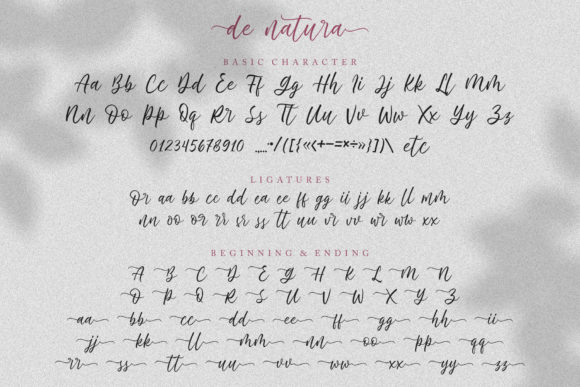 de natura
BASIC CHARACTER
Aa Bb Cc Dd Ee Ff Gg Hh Ii Jj Kk Ll Mm
Nn Oo Pp Qq Rr Ss Tt Uu Vv Ww Xx Yy Zz
012345678910 .,..:•/([{«‹+−=×÷»}])\ etc
LIGATURES
Or aa bb cc dd ea ee ff gg ii jj kk ll mm
nn oo or rr sr ss tt uu vr vv wr ww xx
BEGINNING & ENDING
A B C D E G H I K L M N
O P Q R S U V W X Y Z
aa bb cc dd ee ff gg hh ii
jj kk ll mm nn oo pp qq
rr ss tt uu vv ww xx yy zz